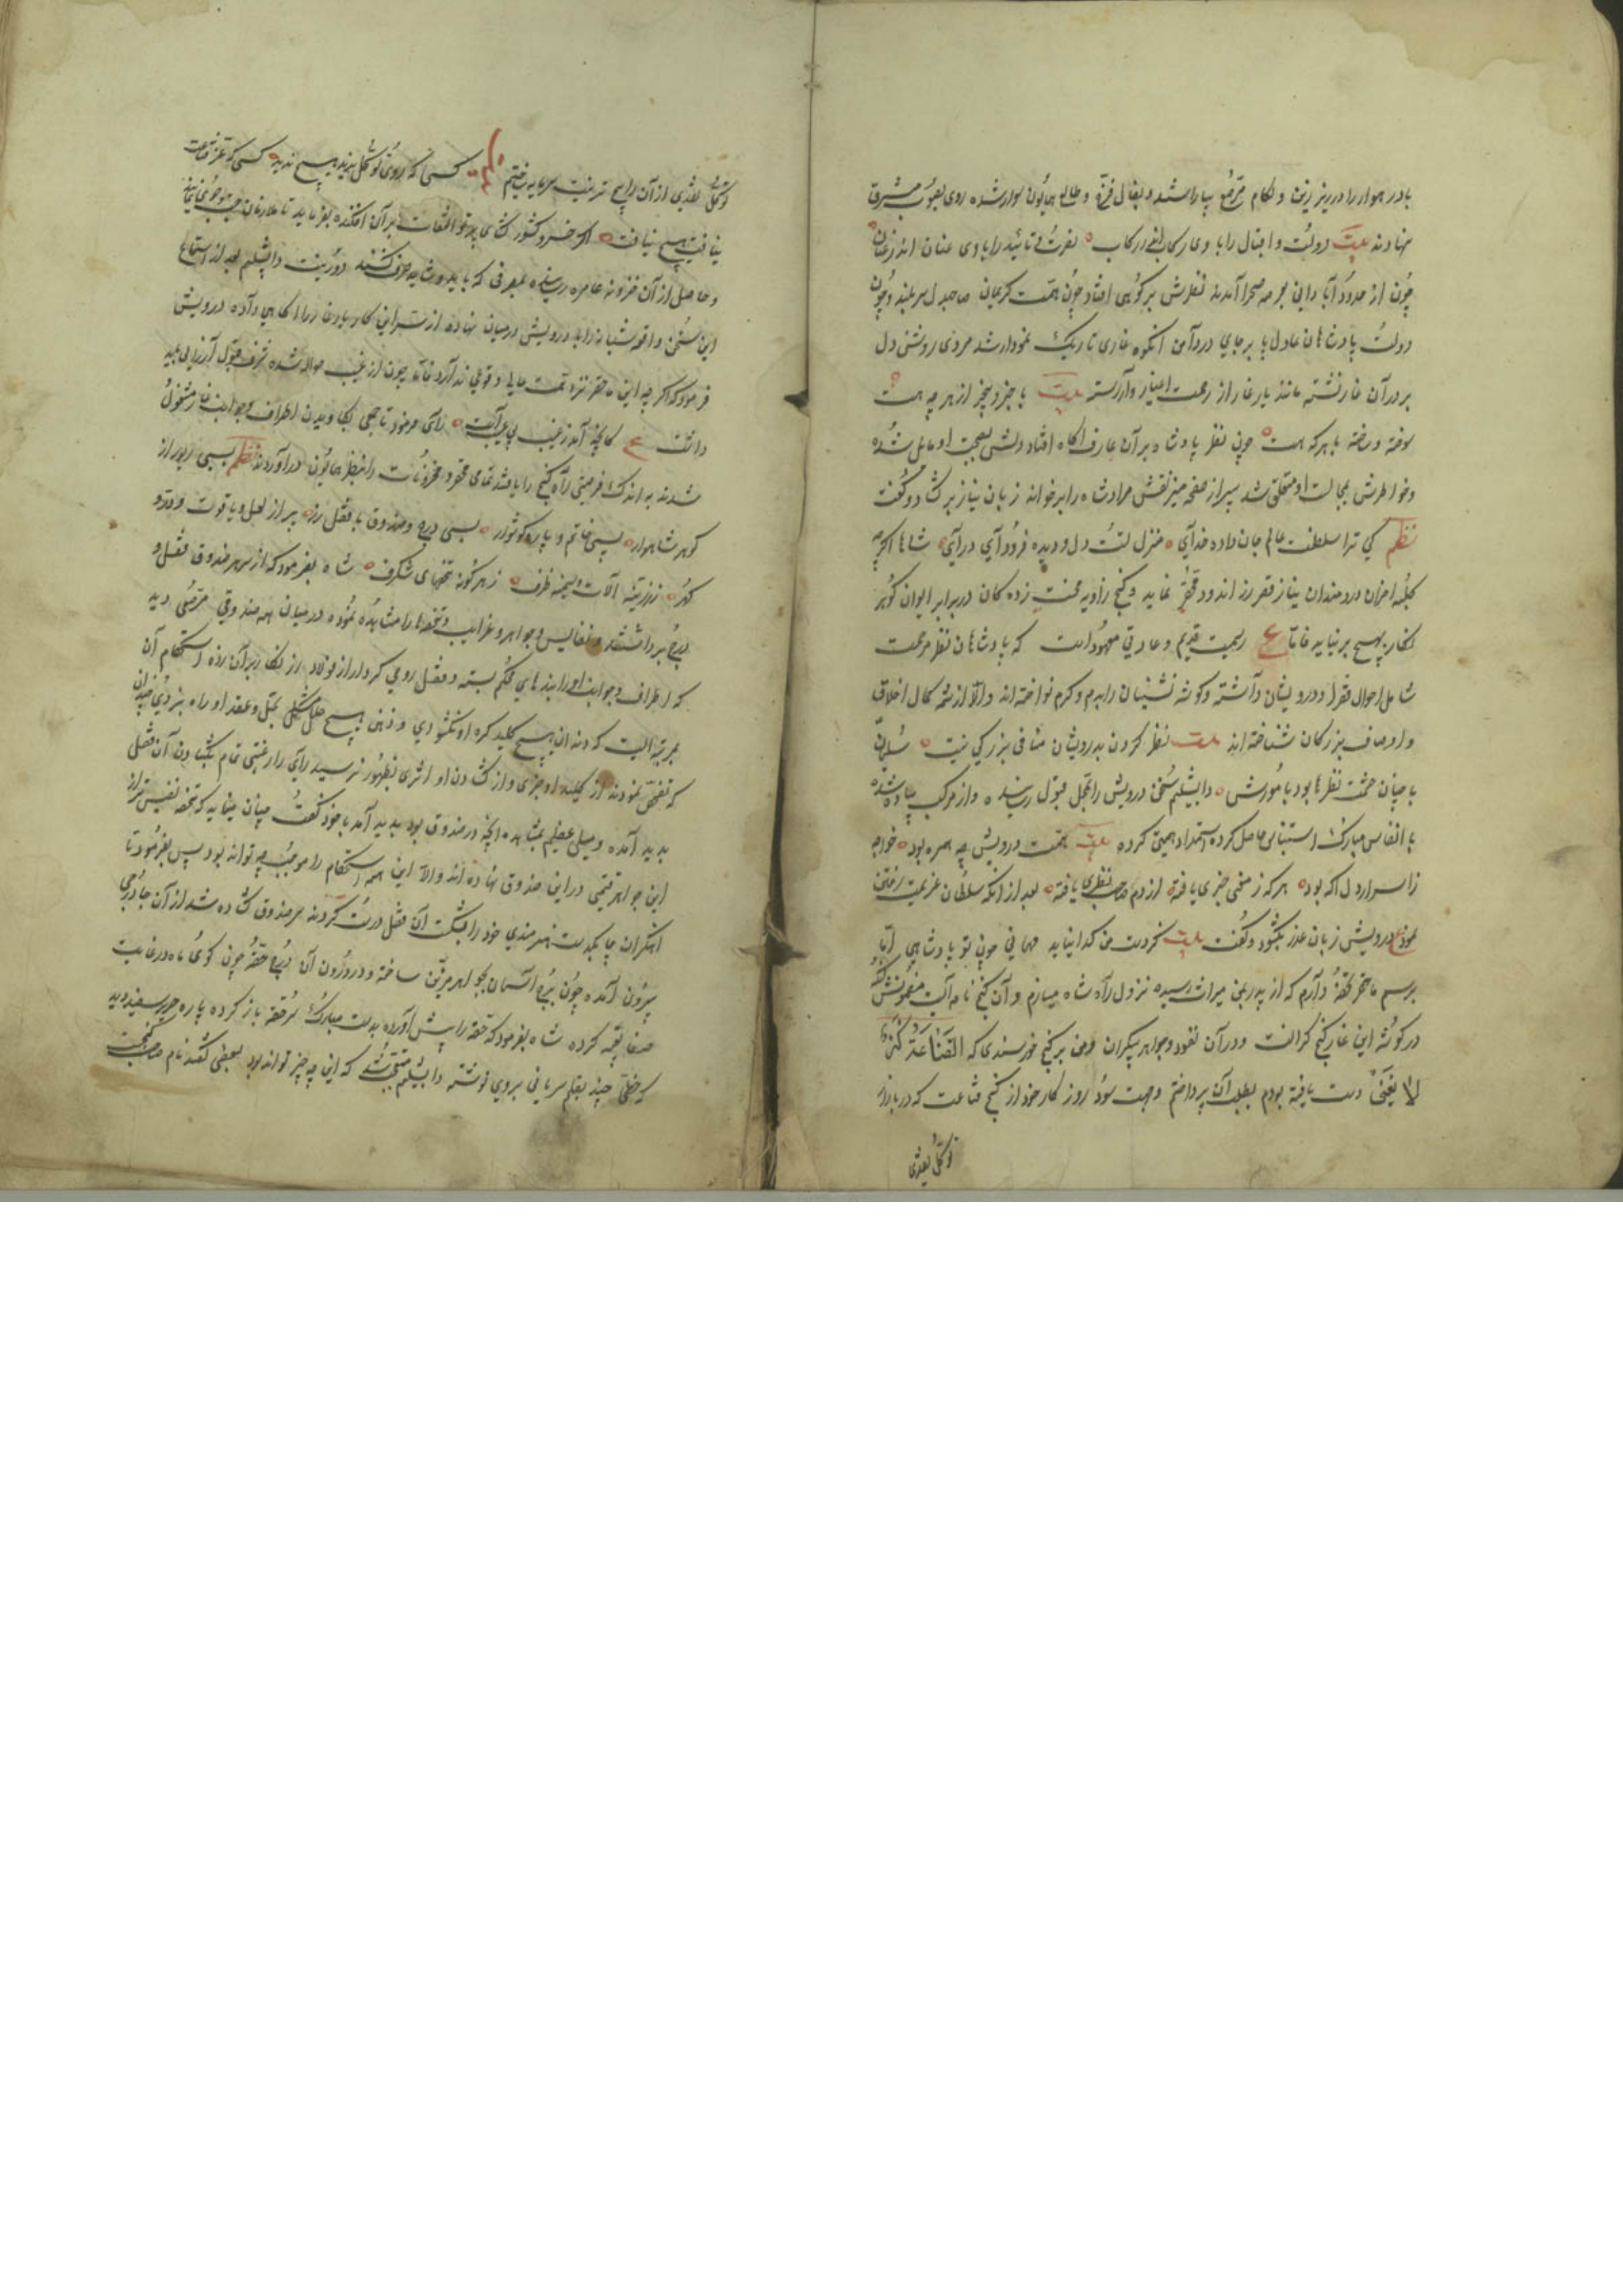 بادر هموار را در زیر زین و لکام مرصع بیاراستند و بفال فرخ و طالع همایون سوار شده روی بصوب مشرق
نهادند بیت دولت و اقبال را با وی رکاب نصرت و تائید را با وی عنان اندر عنان
چون از حدود آبادانی بعرصه صحرا آمدند نظرش بر کوهی افتاد چون همت کریمان صاحبدل سر بلند و چون
دولت پادشاهان عادل پا برجای در دامن انکوه غاری تاریک نمودار شد مردی روشن دل
بر در آن غار نشسته مانند یار غار از زحمت اغیار وارسته بیت با خبر و بیخبر از هر چه هست
سوخته و ساخته با هر که هست چون نظر پادشاه بر آن عارف اکاه افتاد دلش بصحبت او مایل شده
و خاطرش بمجالست او متعلق شد پیر از صفحه ضمیر نقش مراد شاه را بر خواند زبان نیاز بر کشاد و کفت
نظم کی ترا سلطنت عالم جان داده خدای منزل تست دل و دیده فرود آی درآی شاها اکرچه
کلبه احزان دردمندان بنیاز قصر زر اندود محقر نماید و کنج زاویه محنت زده کان در برابر ایوان کوهر
نکار بهیچ بر نیاید فاما ع رسمیست قدیم و عادتی معهود است که پادشاهان نظر مرحمت
شامل احوال فقرا و درویشان داشته و کوشه نشینان را بقدم و کرم نواخته اند و انرا از تتمه کمال اخلاق
و اوصاف بزرکان شناخته اند بیت نظر کردن بدرویشان منافی بزرکی نیست سلیمان
با چنان حشمت نظرها بود با مورش دابشلیم سخن درویش را بمحل قبول رسانیده و از مرکب پیاده شده
با انفاس مبارک استیناس حاصل کرده استمداد همتی کرده بیت همت درویش چه همره بود خواجه
ز اسرار دل اکه بود هر که ز معنی خبری یافته از دم صاحب نظری یافته بعد از انکه سلطان عزیمت رفتن
نمود درویش زبان عذر بکشود و کفت بیت کز دست من کدا نیاید مهمانی چون تو پادشاهی اما
برسم ماحضر تحفه دارم که از پدر بمن میراث رسیده نزول راه شاه میسازم و آن کنج نامه است مضمونش انکه
در کوشه این غار کنج کرانست و در آن نقود و جواهر بیکران و من بر کنج خورسندی که القناعة کنز
لا یفنی دست یافته بودم بطلب آن نپرداختم و جهت سود روز کار خود از کنج قناعت که در بازار
توکل نقدی
توکل نقدی از آن رایج تر نیست سرمایه ساختم نظم کسی که روی توکل ندید هیچ ندید کسی که عز قناعت
نیافت هیچ نیافت اکر خسرو کشور کشای پرتو التفات بر آن افکنده بفرماید تا ملازمان جست و جوی نمایند
و حاصل از آن خزونه عامره رسانیده بمصرفی که باید و شاید صرف کنند دور نیست دابشلیم بعد از استماع
این سخن واقعه شبانه را با درویش در میان نهاده از سر این کار یار غار را اکاهی داده درویش
فرمود که اکر چه این محقر نزد همت عالی وقوعی ندارد فاما چون از غیب حواله شده شرف قبول ارزانی باید
داشت ع کانچه آمد ز غیب بی عیب است رای فرمود تا جمعی بکاویدن اطراف و جوانب غار مشغول
شدند به اندک فرصتی راه کنج را یافتند تمامی محقر و مخزونات را بنظر همایون درآوردند نظم بسی زیور از
کوهر شاهوار بسی خاتم و یاره کوشوار بسی درج و صندوق با قفل زر پر از لعل و یاقوت و در و
کهر ز زرینه آلات و سیمینه ظرف ز هر کونه تحفهای شکرف شاه بفرمود که از سر هر صندوق قفل و
درج برداشتند و نفایس و جواهر و غرایب و تحفها را مشاهده نموده در میان همه صندوقی مرصع دید
که اطراف و جوانب او را بندهای محکم بسته و قفل رومی کردار از فولاد زر نکار بر آن زده استحکام آن
بمرتبه ایست که دندان هیچ کلید کره او نکشودی و ذهن هیچ حلال مشکلی بحل عقد او راه نبردی چندان
که تفحص نمودند از کلید او خبری و از کشادن او اثری بظهور نرسید رای را رغبتی تمام بکشادن آن قفل
پدید آمده و میلی عظیم بمشاهده انچه در صندوق بود پدید آمد با خود کفت چنان مینماید که تحفه نفیس تر از
این جواهر قیمتی در این صندوق نهاده اند والا این همه استحکام را موجب چه تواند بود پس بفرمود تا
اهنکران چابکدست هنرمندی خود را بشکست آن قفل درست کردند سر صندوق کشاده شد از آن جا درجی
بیرون آمد چون برج آسمان بجواهر مزین ساخته و در درون آن درج حقه چون کوی ماه در غایت
صفا تعبیه کرده شاه بفرمود که حقه را پیش آورده بدست مبارک سر حقه باز کرده پاره حریر سفید دید
که خطی چند بقلم سریانی بروی نوشته دابشلیم متعجب شد که این چه چیز تواند بود بعضی کفتند نام صاحب کنجست